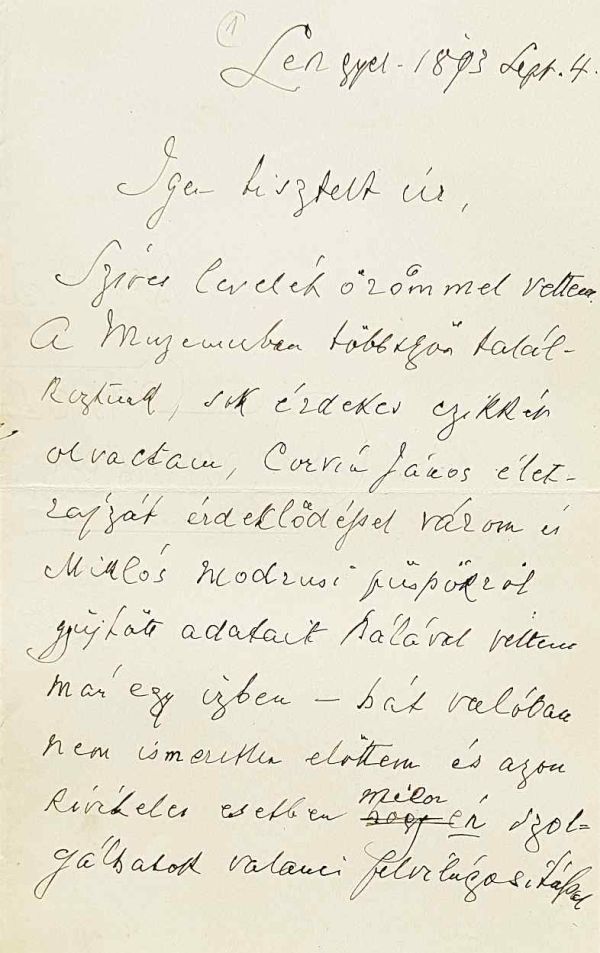 1
Lengyel - 1893 Sept. 4.
Igen tisztelt úr,
Szíves levelék örömmel vettem.
A Muzeumban többször talál-
koztunk, sok érdekes czikkét
olvastam, Corvin János élet-
rajzát érdeklődéssel várom és
Miklós modrusi püspökről
gyűjtött adatait hálával vettem
már egy izben – hát valóban
nem ismeretlen előttem és azon
kivételes esetben midőn
hogy én szol-
gálhatok valami felvilágosítással